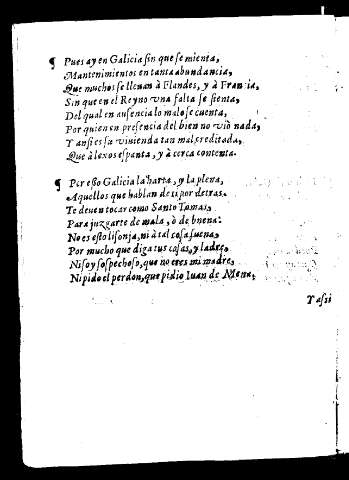 ¶ Pues ay en Galicia sin que se mienta,
Mantenimientos en tanta abundancia,
Que muchos se lleuan à Flandes, y à Francia,
Sin que en el Reyno vna falta se sienta,
Del qual en ausencia lo malo se cuenta,
Por quien en presencia del bien no viò nada,
Y ansi es su viuienda tan mal acreditada,
Que à lexos espanta, y à cerca contenta.
¶ Por esso Galicia la harta, y la plena,
Aquellos que hablan de ti por detras.
Te deuen tocar como Santo Tomas,
Para juzgarte de mala, ò de buena.
No es esto lisonja, ni à tal cosa suena,
Por mucho que diga tus cosas, y ladre,
Ni soy sospechoso, que no eres mi madre,
Ni pido el perdon, que pidio Iuan de Mena.
Y assi